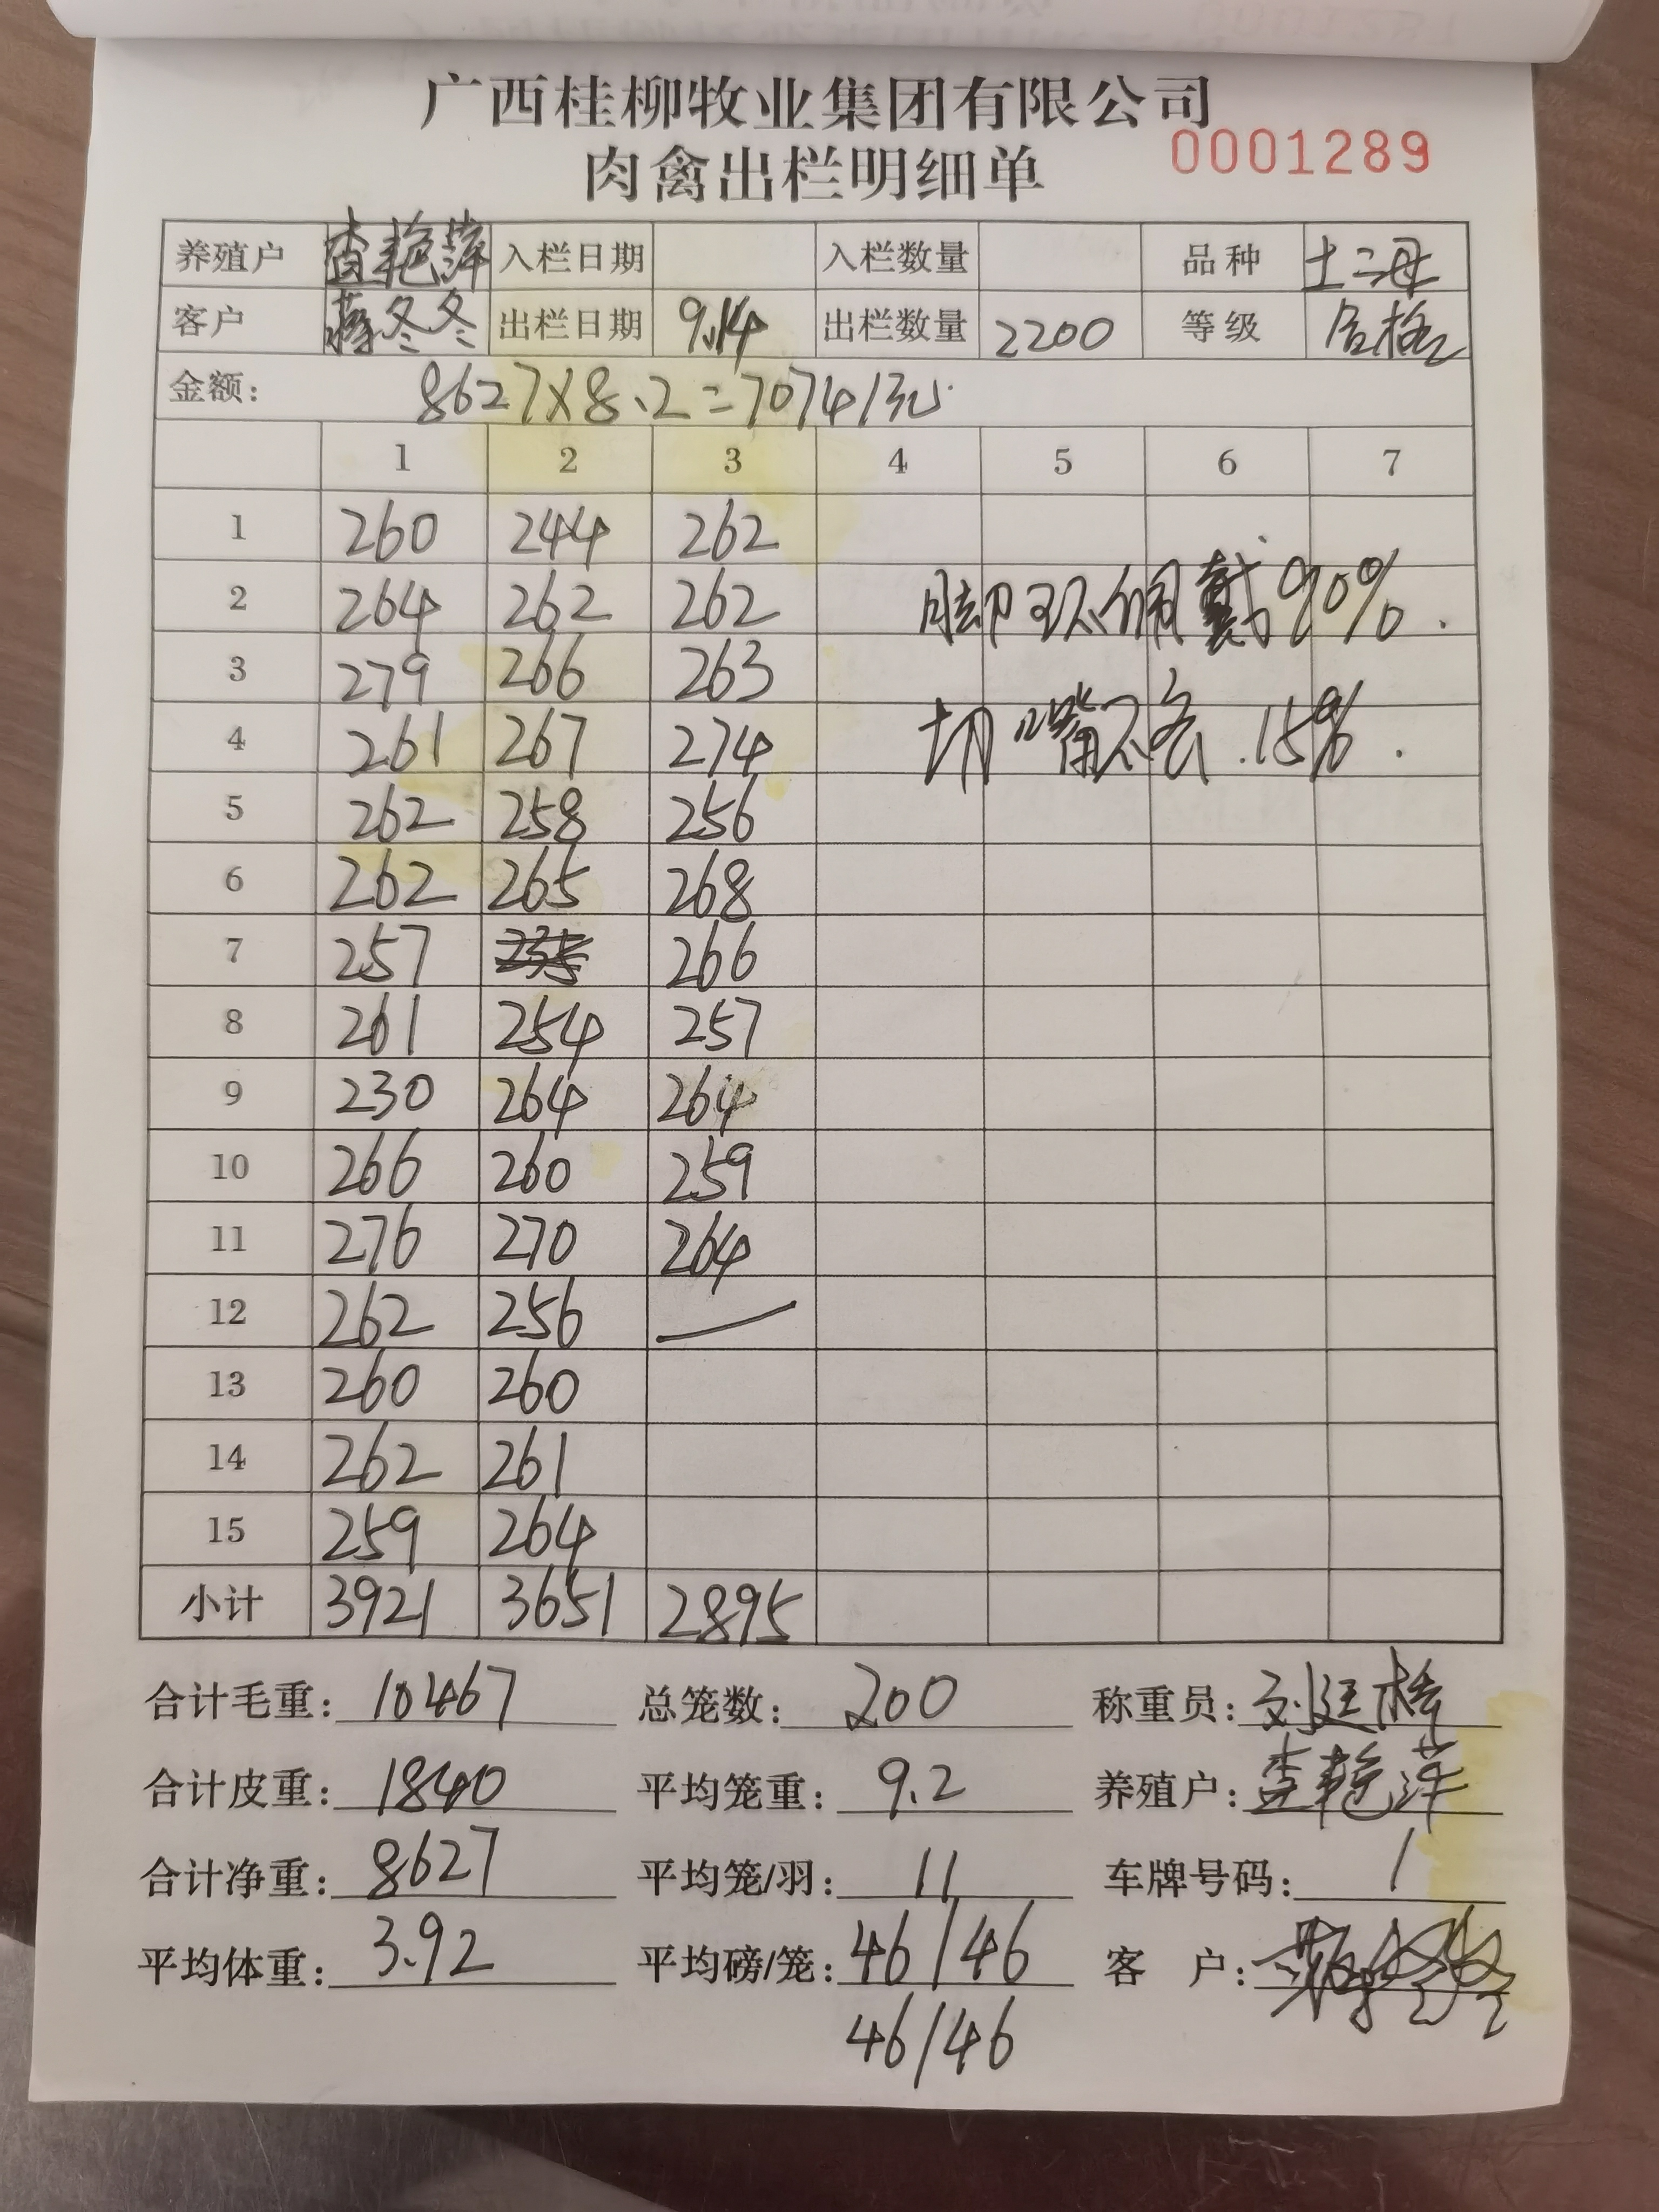 广西桂柳牧业集团有限公司
肉禽出栏明细单 0001289
养殖户 查艳萍 入栏日期 入栏数量 品种 土二母
客户 蒋冬冬 出栏日期 9.14 出栏数量 2200 等级 合格
金额: 8627×8.2=70741元
1 2 3 4 5 6 7
1 260 244 262
2 264 262 262 脚环佩戴90%.
3 279 266 263
4 261 267 274 切嘴不合.15%.
5 262 258 256
6 262 265 268
7 257 266
8 261 254 257
9 230 264 264
10 266 260 259
11 276 270 264
12 262 256 —
13 260 260
14 262 261
15 259 264
小计 3921 3651 2895
合计毛重: 10467 总笼数: 200 称重员: 刘廷
合计皮重: 1840 平均笼重: 9.2 养殖户: 查艳萍
合计净重: 8627 平均笼/羽: 11 车牌号码: 1
平均体重: 3.92 平均磅/笼: 46/46 客 户:
46/46